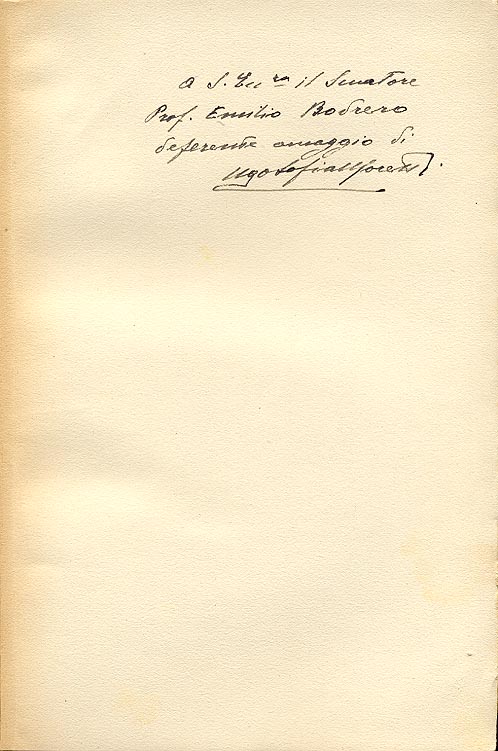 A S. Ecc.za il Senatore
Prof. Emilio Bodrero
deferente omaggio di
Ugo Sofia Moretti